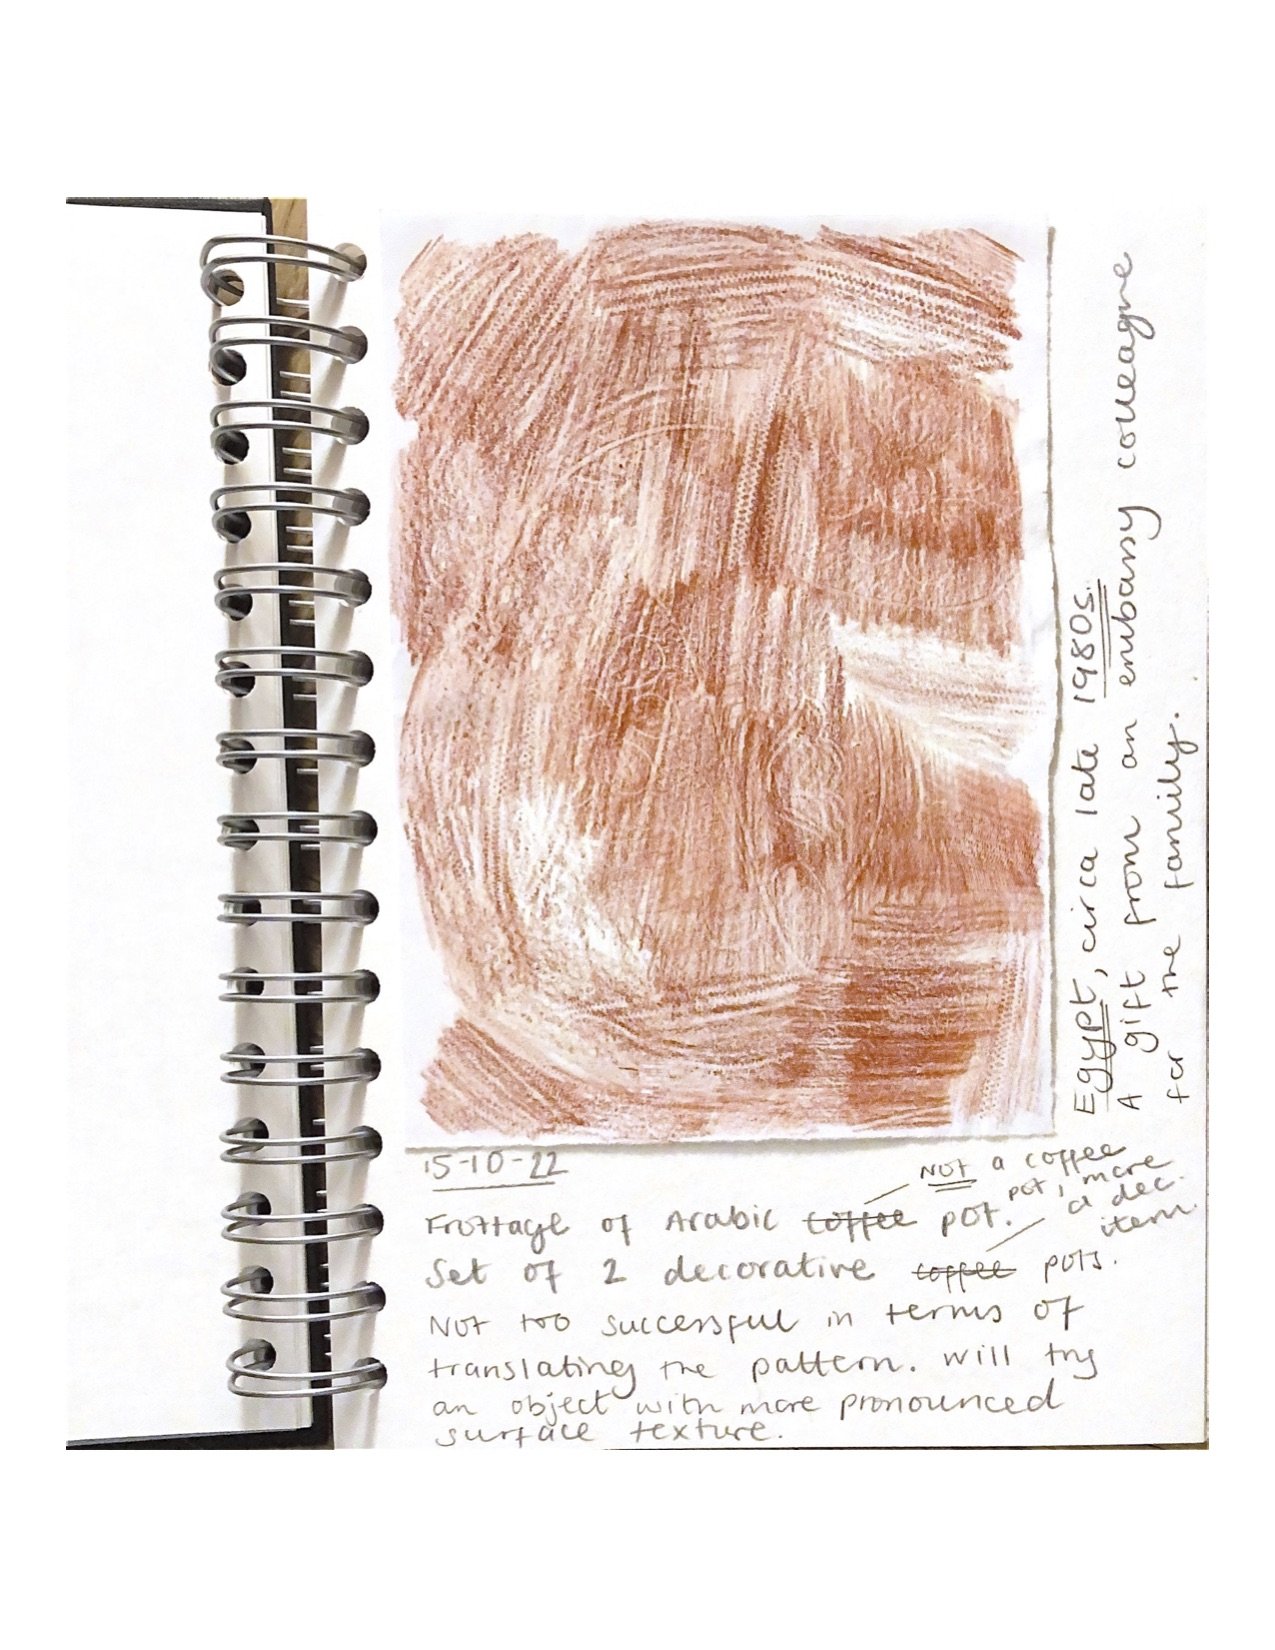 15-10-22
NOT a coffee
pot, more
a dec.
item.
Frottage of Arabic coffee pot.
Set of 2 decorative coffee pots.
Not too successful in terms of
translating the pattern. Will try
an object with more pronounced
surface texture.
Egypt, circa late 1980s.
A gift from an embassy colleague
for the family.